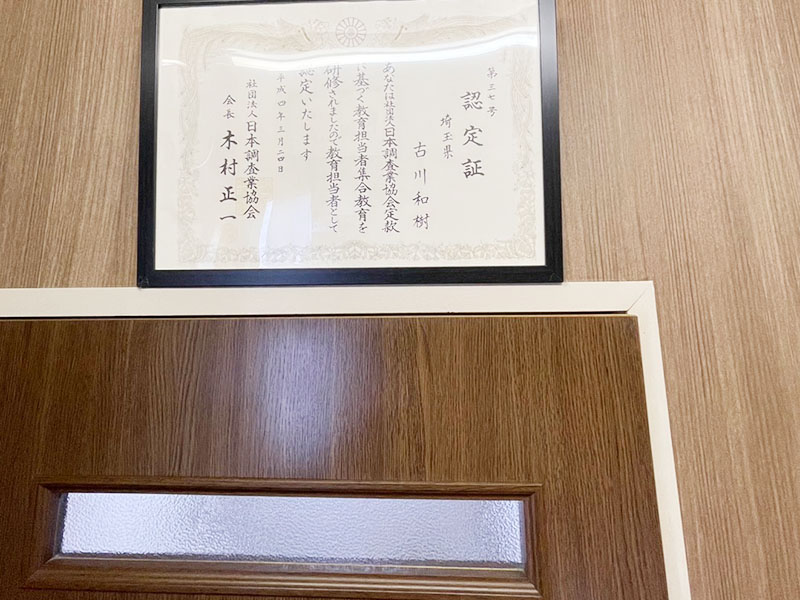 第三七号
認定証
埼玉県
古川和樹
あなたは社団法人日本調査業協会定款
に基づく教育担当者集合教育を
研修されましたので教育担当者として
認定いたします
平成四年三月二四日
社団法人日本調査業協会
会長 木村正一